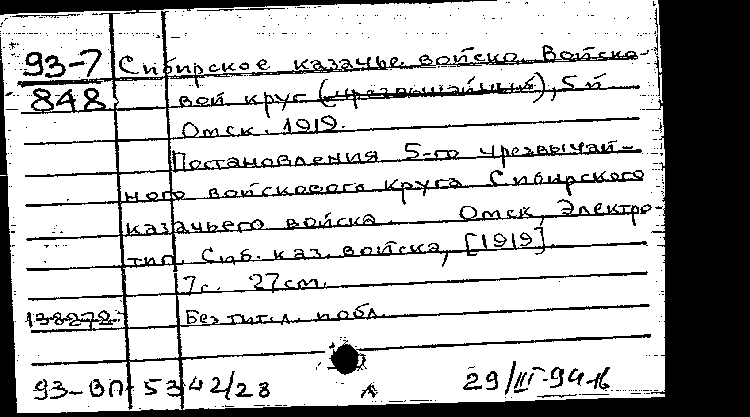 93-7 Сибирское казачье войско. Войско-
848 вой круг (чрезвычайный), 5й
Омск. 1919.
Постановления 5-го чрезвычай-
ного войскового круга Сибирского
казачьего войска. Омск, Электро-
тип. Сиб. каз. войска, [1919].
7с. 27cm.
138272 Без тит. л. и обл.
93-ВП-5342/23 А 29/III-94-